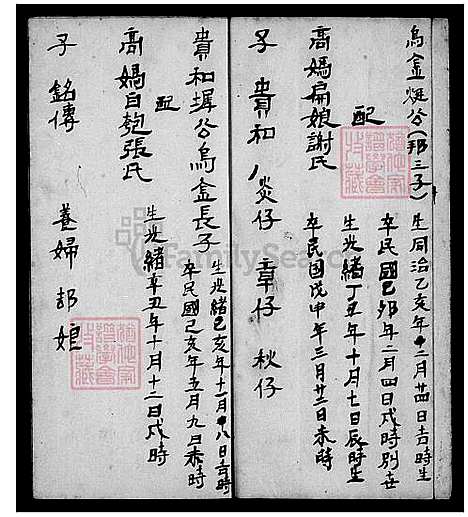 烏金烶公(邦三子)
生同治乙亥年十二月廿四日吉時生
卒民國己卯年二月四日戌時別世
配
高媽扁娘謝氏
生光緒丁丑年十月七日辰時生
卒民国戊申年三月廿二日未時
子 貴和 炎仔 章仔 秋仔
貴和墀公烏金長子
生光緒己亥年十一月十八日吉時
卒民國己亥年五月九日未時
配
高媽白匏張氏
生光緒辛丑年十月十二日戌時
子 銘傳 養婦 部娘
FamilySearch